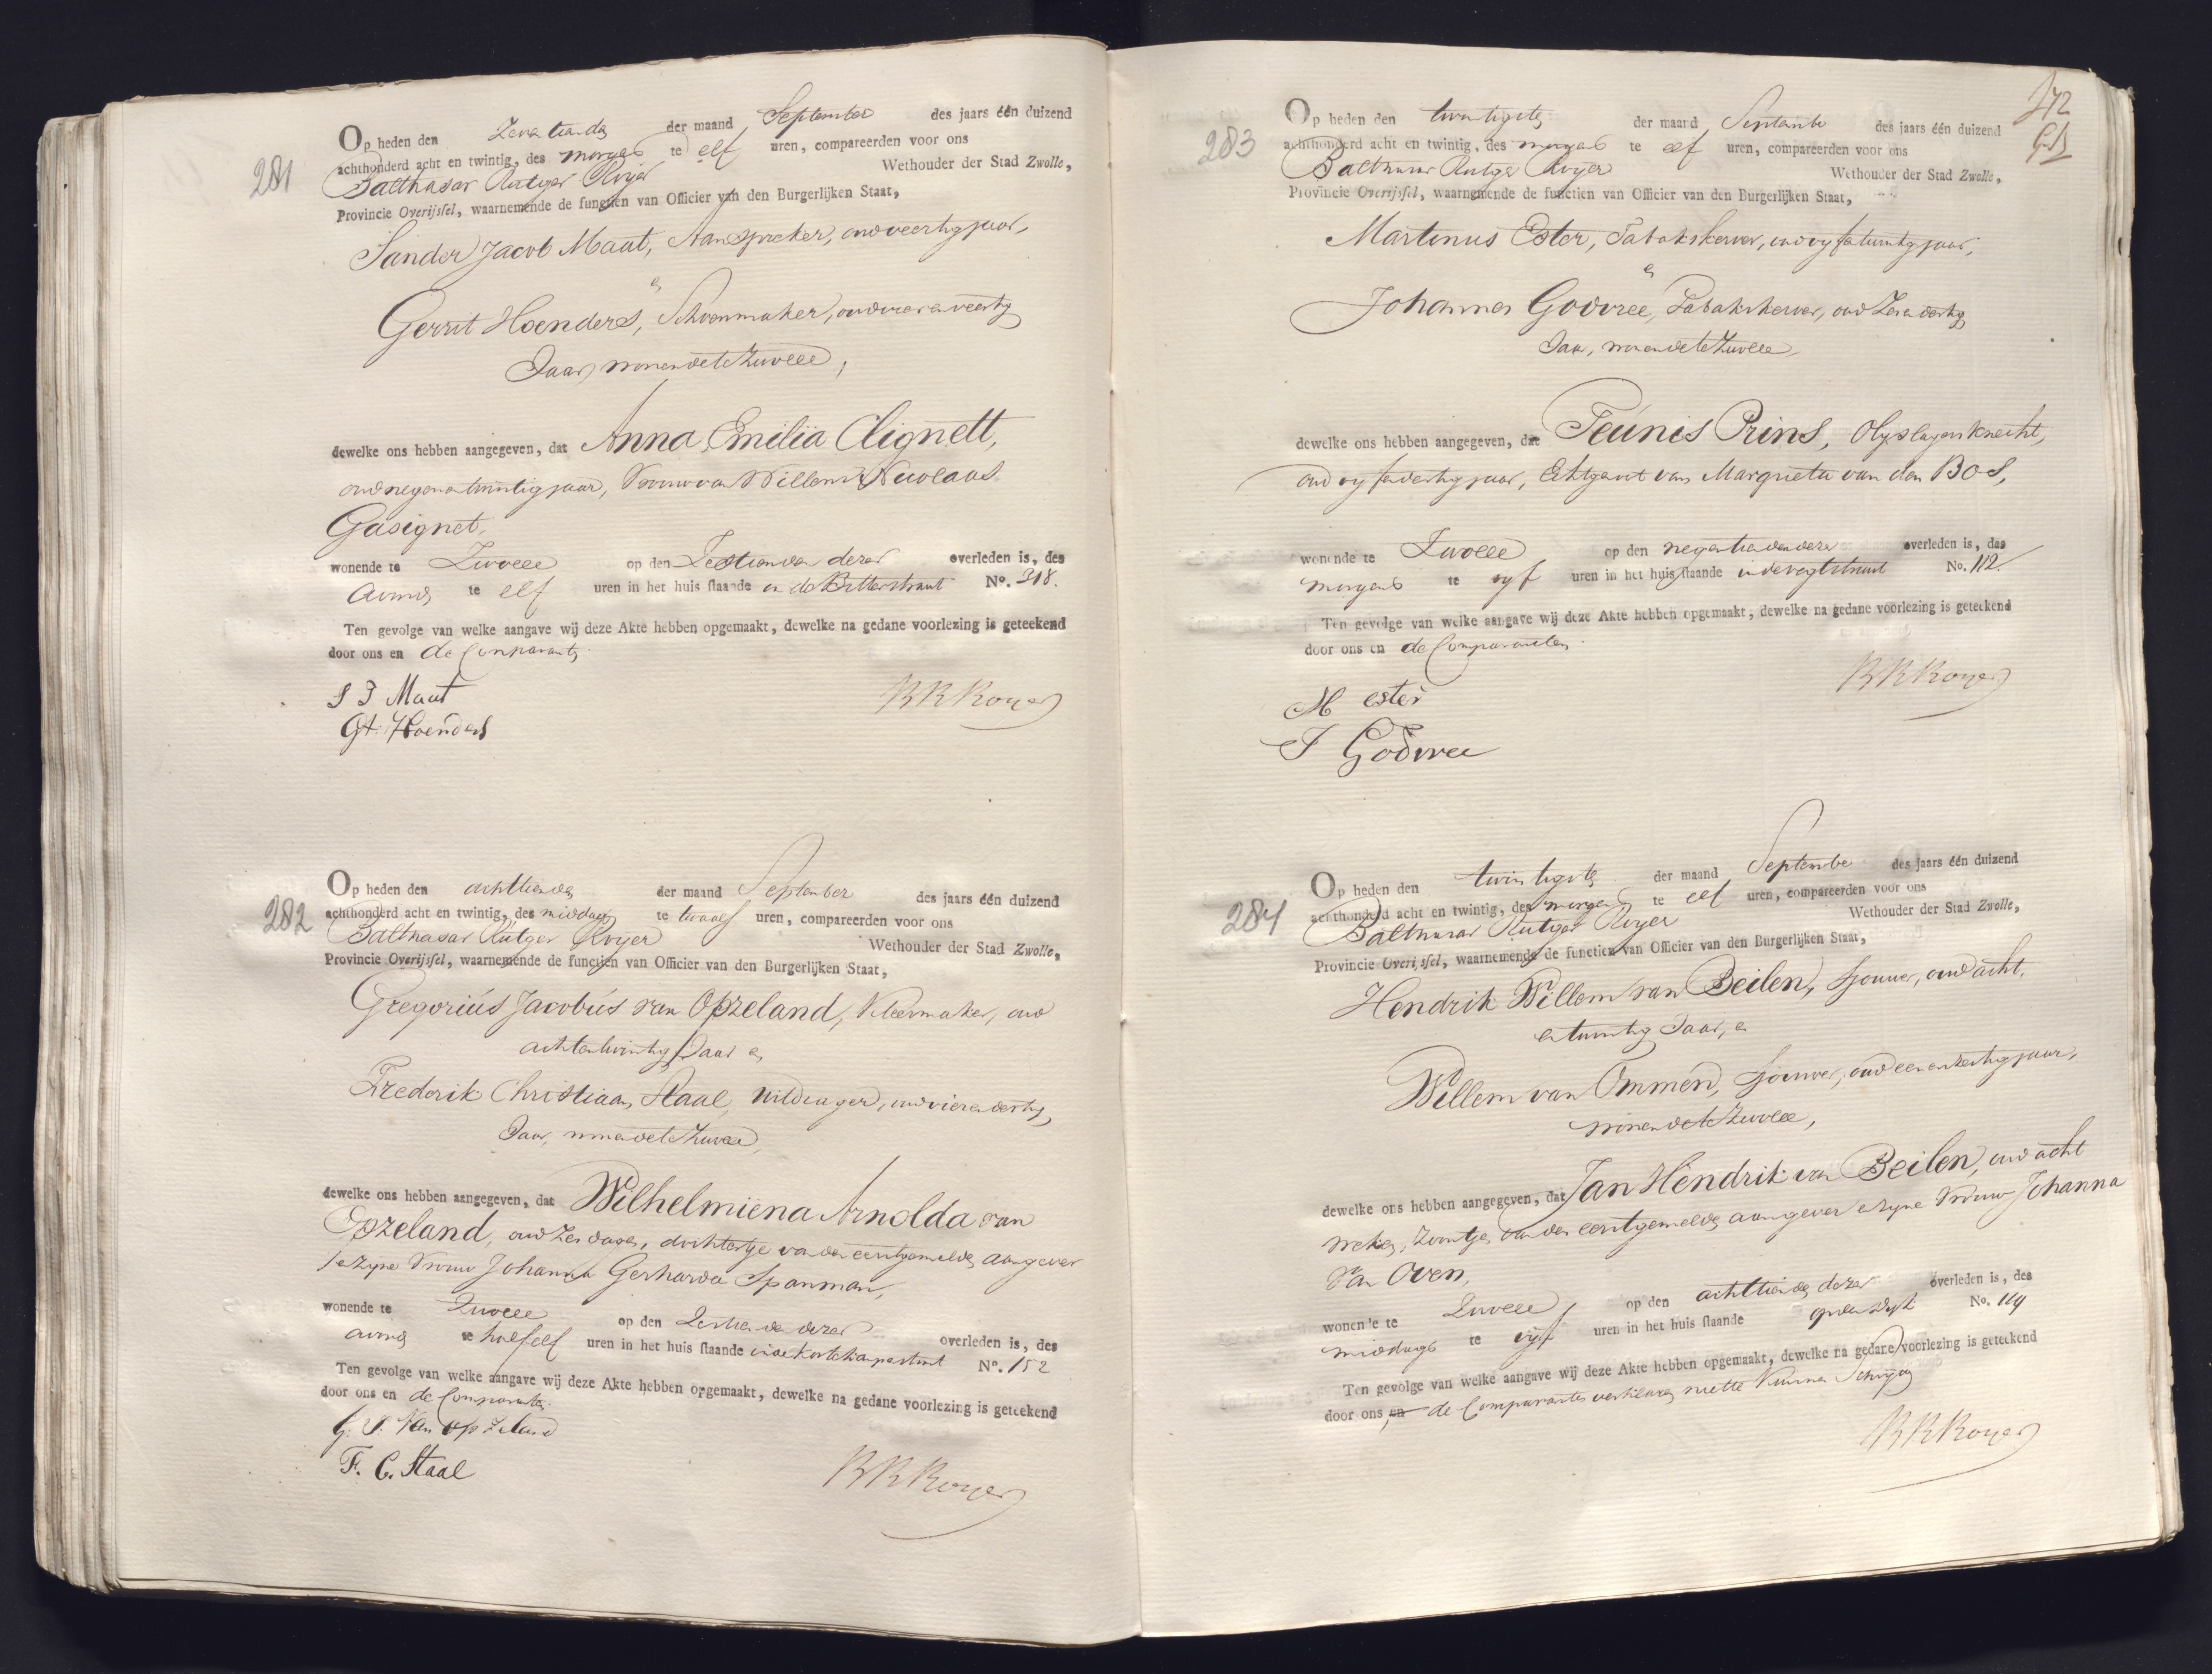 281
Op heden den Zeventiende der maand September des jaars één duizend
achthonderd acht en twintig, des morgens te elf uren, compareerden voor ons
Balthasar Rutger Royer Wethouder der Stad Zwolle,
Provincie Overijssel, waarnemende de functien van Officier van den Burgerlijken Staat,
Sander Jacob Maat, Aanspreker, oud veertig jaar,
en
Gerrit Hoenders, Schoenmaker, oud vier en veertig
Jaar, wonende te Zwolle,
dewelke ons hebben aangegeven, dat Anna Emilia Clignett,
oud negen en twintig jaar, Vrouw van Willem Nicolaas
Gasignet,
wonende te Zwolle op den Zestienden dezer overleden is, des
avonds te elf uren in het huis staande in de Bitterstraat No. 318.
Ten gevolge van welke aangave wij deze Akte hebben opgemaakt, dewelke na gedane voorlezing is geteekend
door ons en de Comparanten
S J Maat
Gt. Hoenders
B R Royer
282
Op heden den achttiende der maand September des jaars één duizend
achthonderd acht en twintig, des middags te twaalf uren, compareerden voor ons
Balthasar Rutger Royer Wethouder der Stad Zwolle,
Provincie Overijssel, waarnemende de functien van Officier van den Burgerlijken Staat,
Gregoriús Jacobús van Opzeland, Kleermaker, oud
achtentwintig Jaar en
Frederik Christiaan Staal, Uitdrager, oud vier en dertig
Jaar, wonende te Zwolle,
dewelke ons hebben aangegeven, dat Wilhelmiena Arnolda van
Opzeland, oud zes dagen, dochtertje van den eerstgemelde aangever
en zyne Vrouw Johanna Gerharda Spanman,
wonende te Zwolle op den Zestiende dezer overleden is, des
avonds te half elf uren in het huis staande in de Korte Kamperstraat No. 152
Ten gevolge van welke aangave wij deze Akte hebben opgemaakt, dewelke na gedane voorlezing is geteekend
door ons en de Comparanten.
G. J. Van op Zeland
F. C. Staal
B R Royer
272
283
Op heden den twintigste der maand September des jaars één duizend
achthonderd acht en twintig, des morgens te elf uren, compareerden voor ons
Balthasar Rutger Royer Wethouder der Stad Zwolle,
Provincie Overijssel, waarnemende de functien van Officier van den Burgerlijken Staat,
Martinus Ester, Tabakskerver, oud vyfentwintig jaar,
en
Johannes Godvree, Tabakskerver, oud Zes en dertig
Jaar, wonende te Zwolle,
dewelke ons hebben aangegeven, dat Teúnis Prins, Olyslagersknecht,
oud vyf en dertig jaar, Echtgenoot van Margrieta van den Bos,
wonende te Zwolle op den negentienden dezer overleden is, des
morgens te vyf uren in het huis staande in de voorstraat No. 112.
Ten gevolge van welke aangave wij deze Akte hebben opgemaakt, dewelke na gedane voorlezing is geteekend
door ons en de Comparanten.
M ester
J Godvree
B R Royer
284
Op heden den twintigste der maand September des jaars één duizend
achthonderd acht en twintig, des morgens te elf uren, compareerden voor ons
Balthasar Rutger Royer Wethouder der Stad Zwolle,
Provincie Overijssel, waarnemende de functien van Officier van den Burgerlijken Staat,
Hendrik Willem van Beilen, Sjouwer, oud acht
en twintig Jaar, en
Willem van Ommen, Sjouwer, oud een en zestig jaar,
wonende te Zwolle,
dewelke ons hebben aangegeven, dat Jan Hendrik van Beilen, oud acht
weken, Zoontje van den eerstgemelde aangever en zyne Vrouw Johanna
Van Oven,
wonende te Zwolle op den achttiende dezer overleden is, des
middags te vyf uren in het huis staande op den Dyk No. 119
Ten gevolge van welke aangave wij deze Akte hebben opgemaakt, dewelke na gedane voorlezing is geteekend
door ons, en de Comparanten verklaren niet te Kunnen Schryven
B R Royer